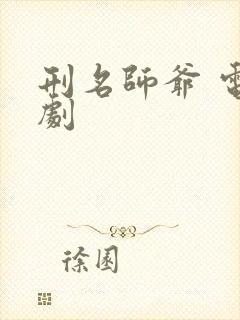 刑名師爺
劇
徐園